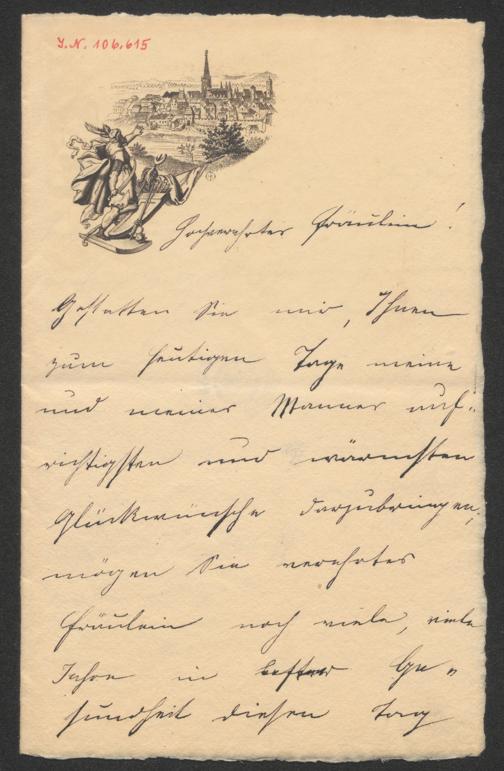 J.N. 106.615
Hochverehrtes Fräulein!
Gestatten Sie mir, Ihnen
zum heutigen Tage meine
und meines Mannes auf-
richtigsten und wärmsten
Glückwünsche darzubringen,
mögen Sie verehrtes
Fräulein noch viele, viele
Jahre in bester Ge-
sundheit diesen Tag